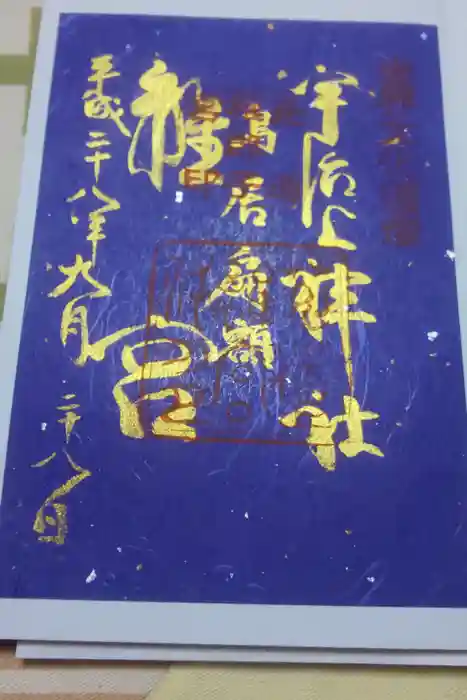 宇治上神社
鳥居扁額
離宮
平成二十八年九月
二十八日